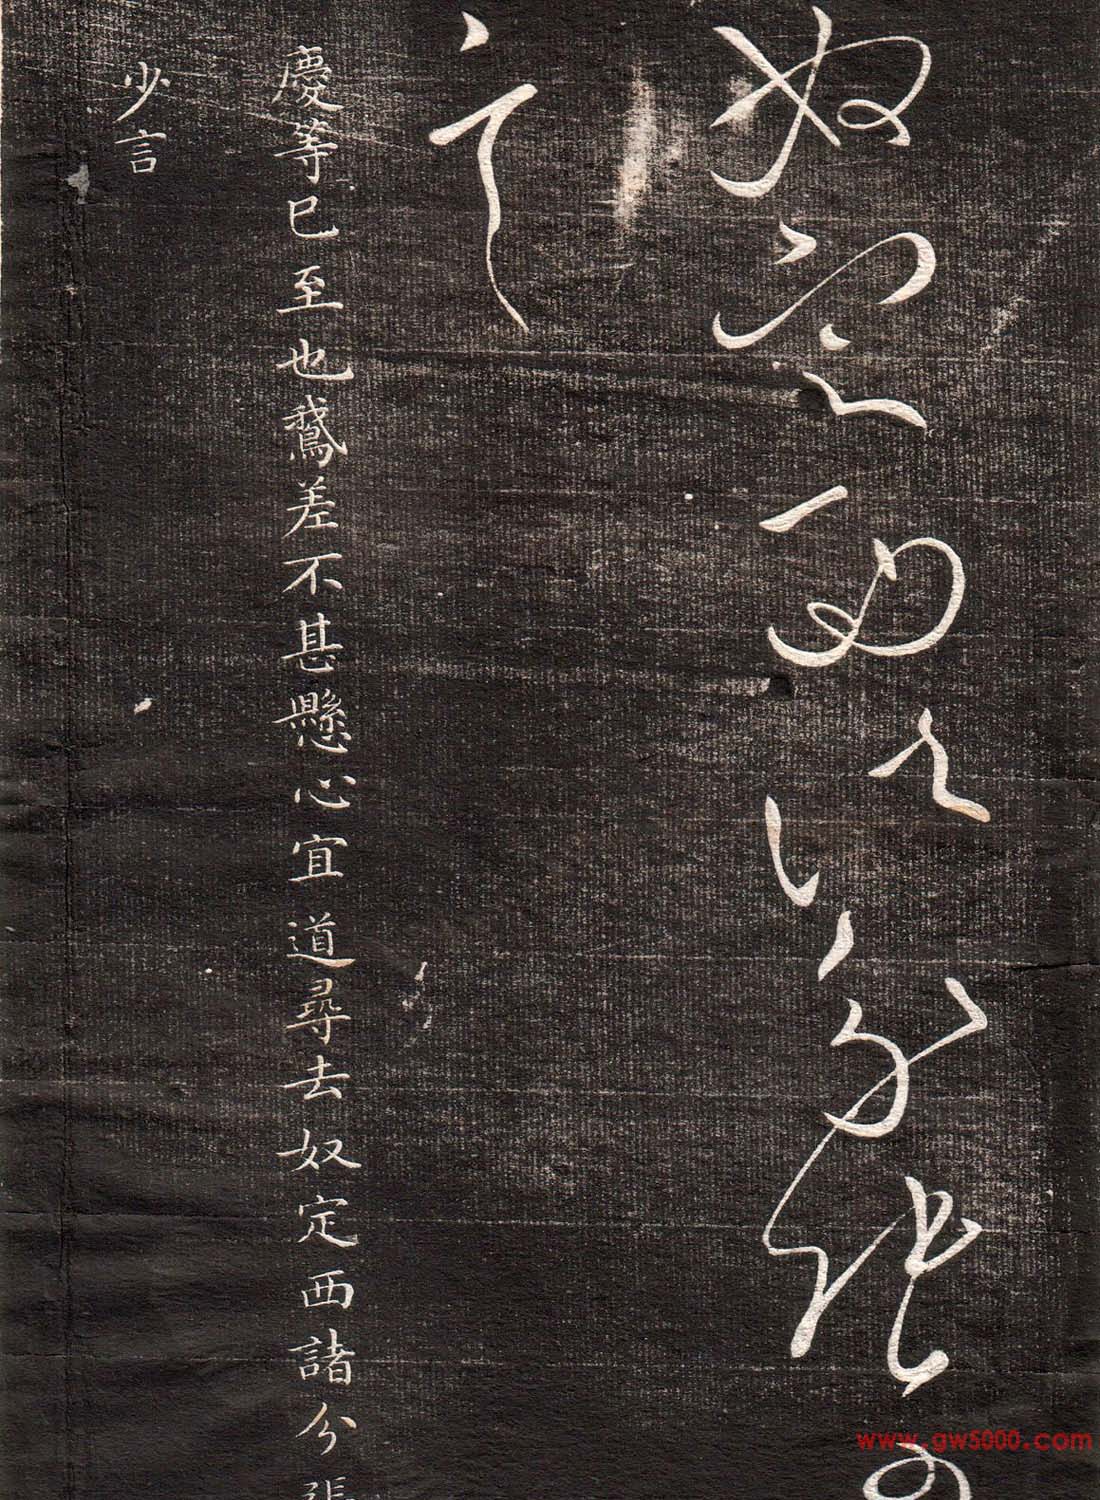 奴定西諸分張
言
慶等已至也鵞差不甚懸心宜道尋去奴定西諸分張
少言
www.gw5000.com